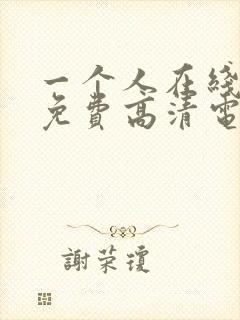 一个人在线
免费高清电
謝荣瓊